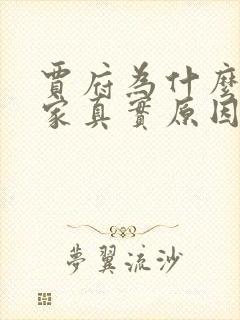 賈府為什麼
家真實原因
夢翼流沙